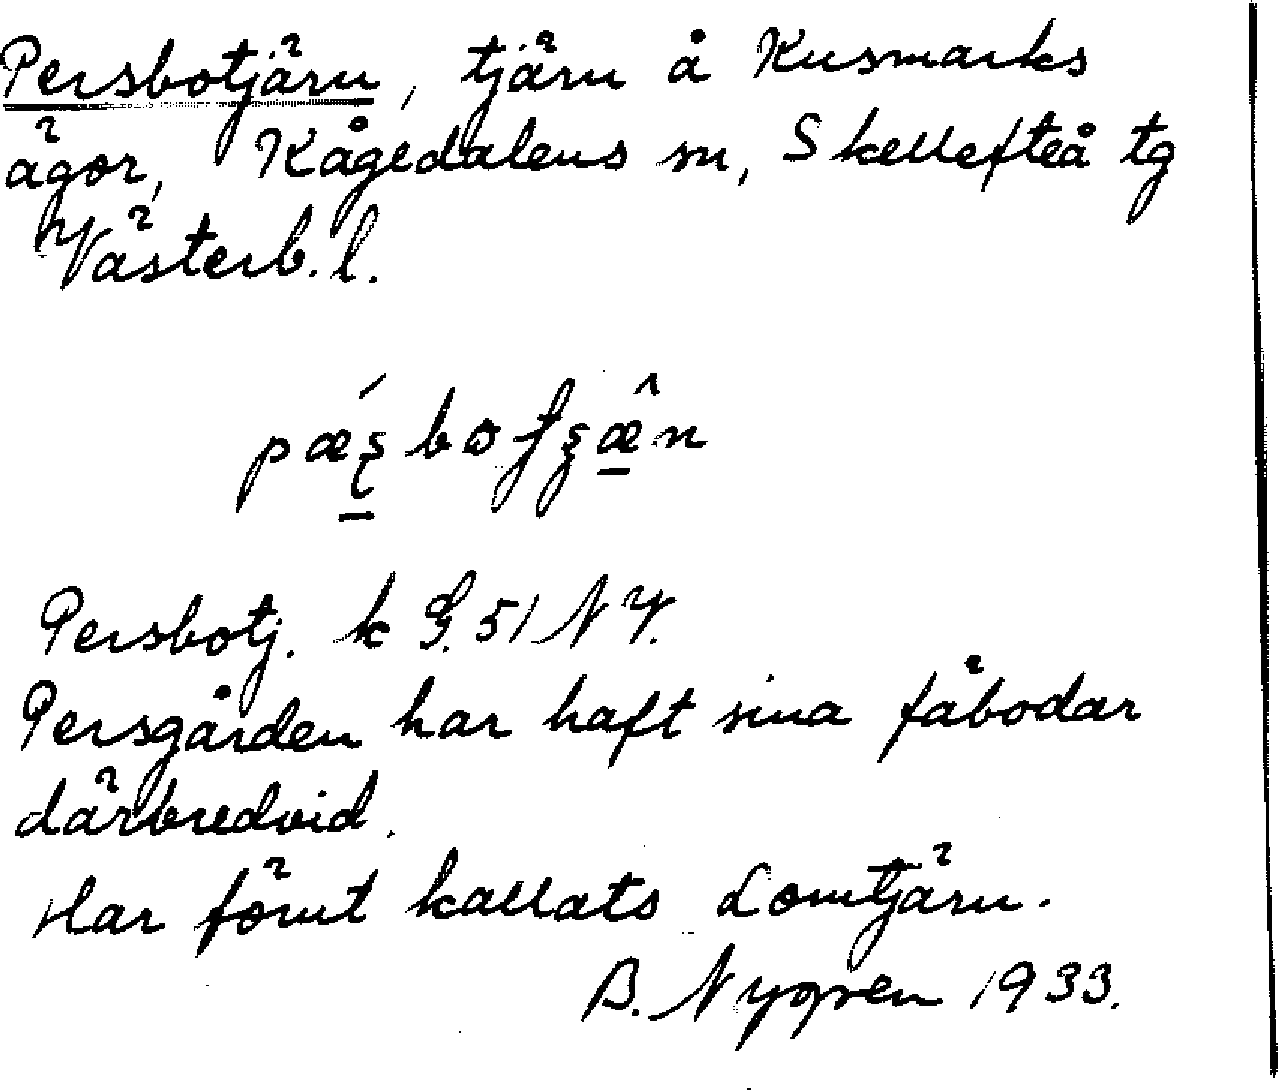 Persbotjärn, tjärn å Kusmarks
ägor, Kågedalens sn, Skellefteå tg
Västerb. l.
Persbotj. k G. 51 NV.
Persgården har haft sina fäbodar
därbredvid.
Har förut kallats Lomtjärn.
B. Nygren 1933.